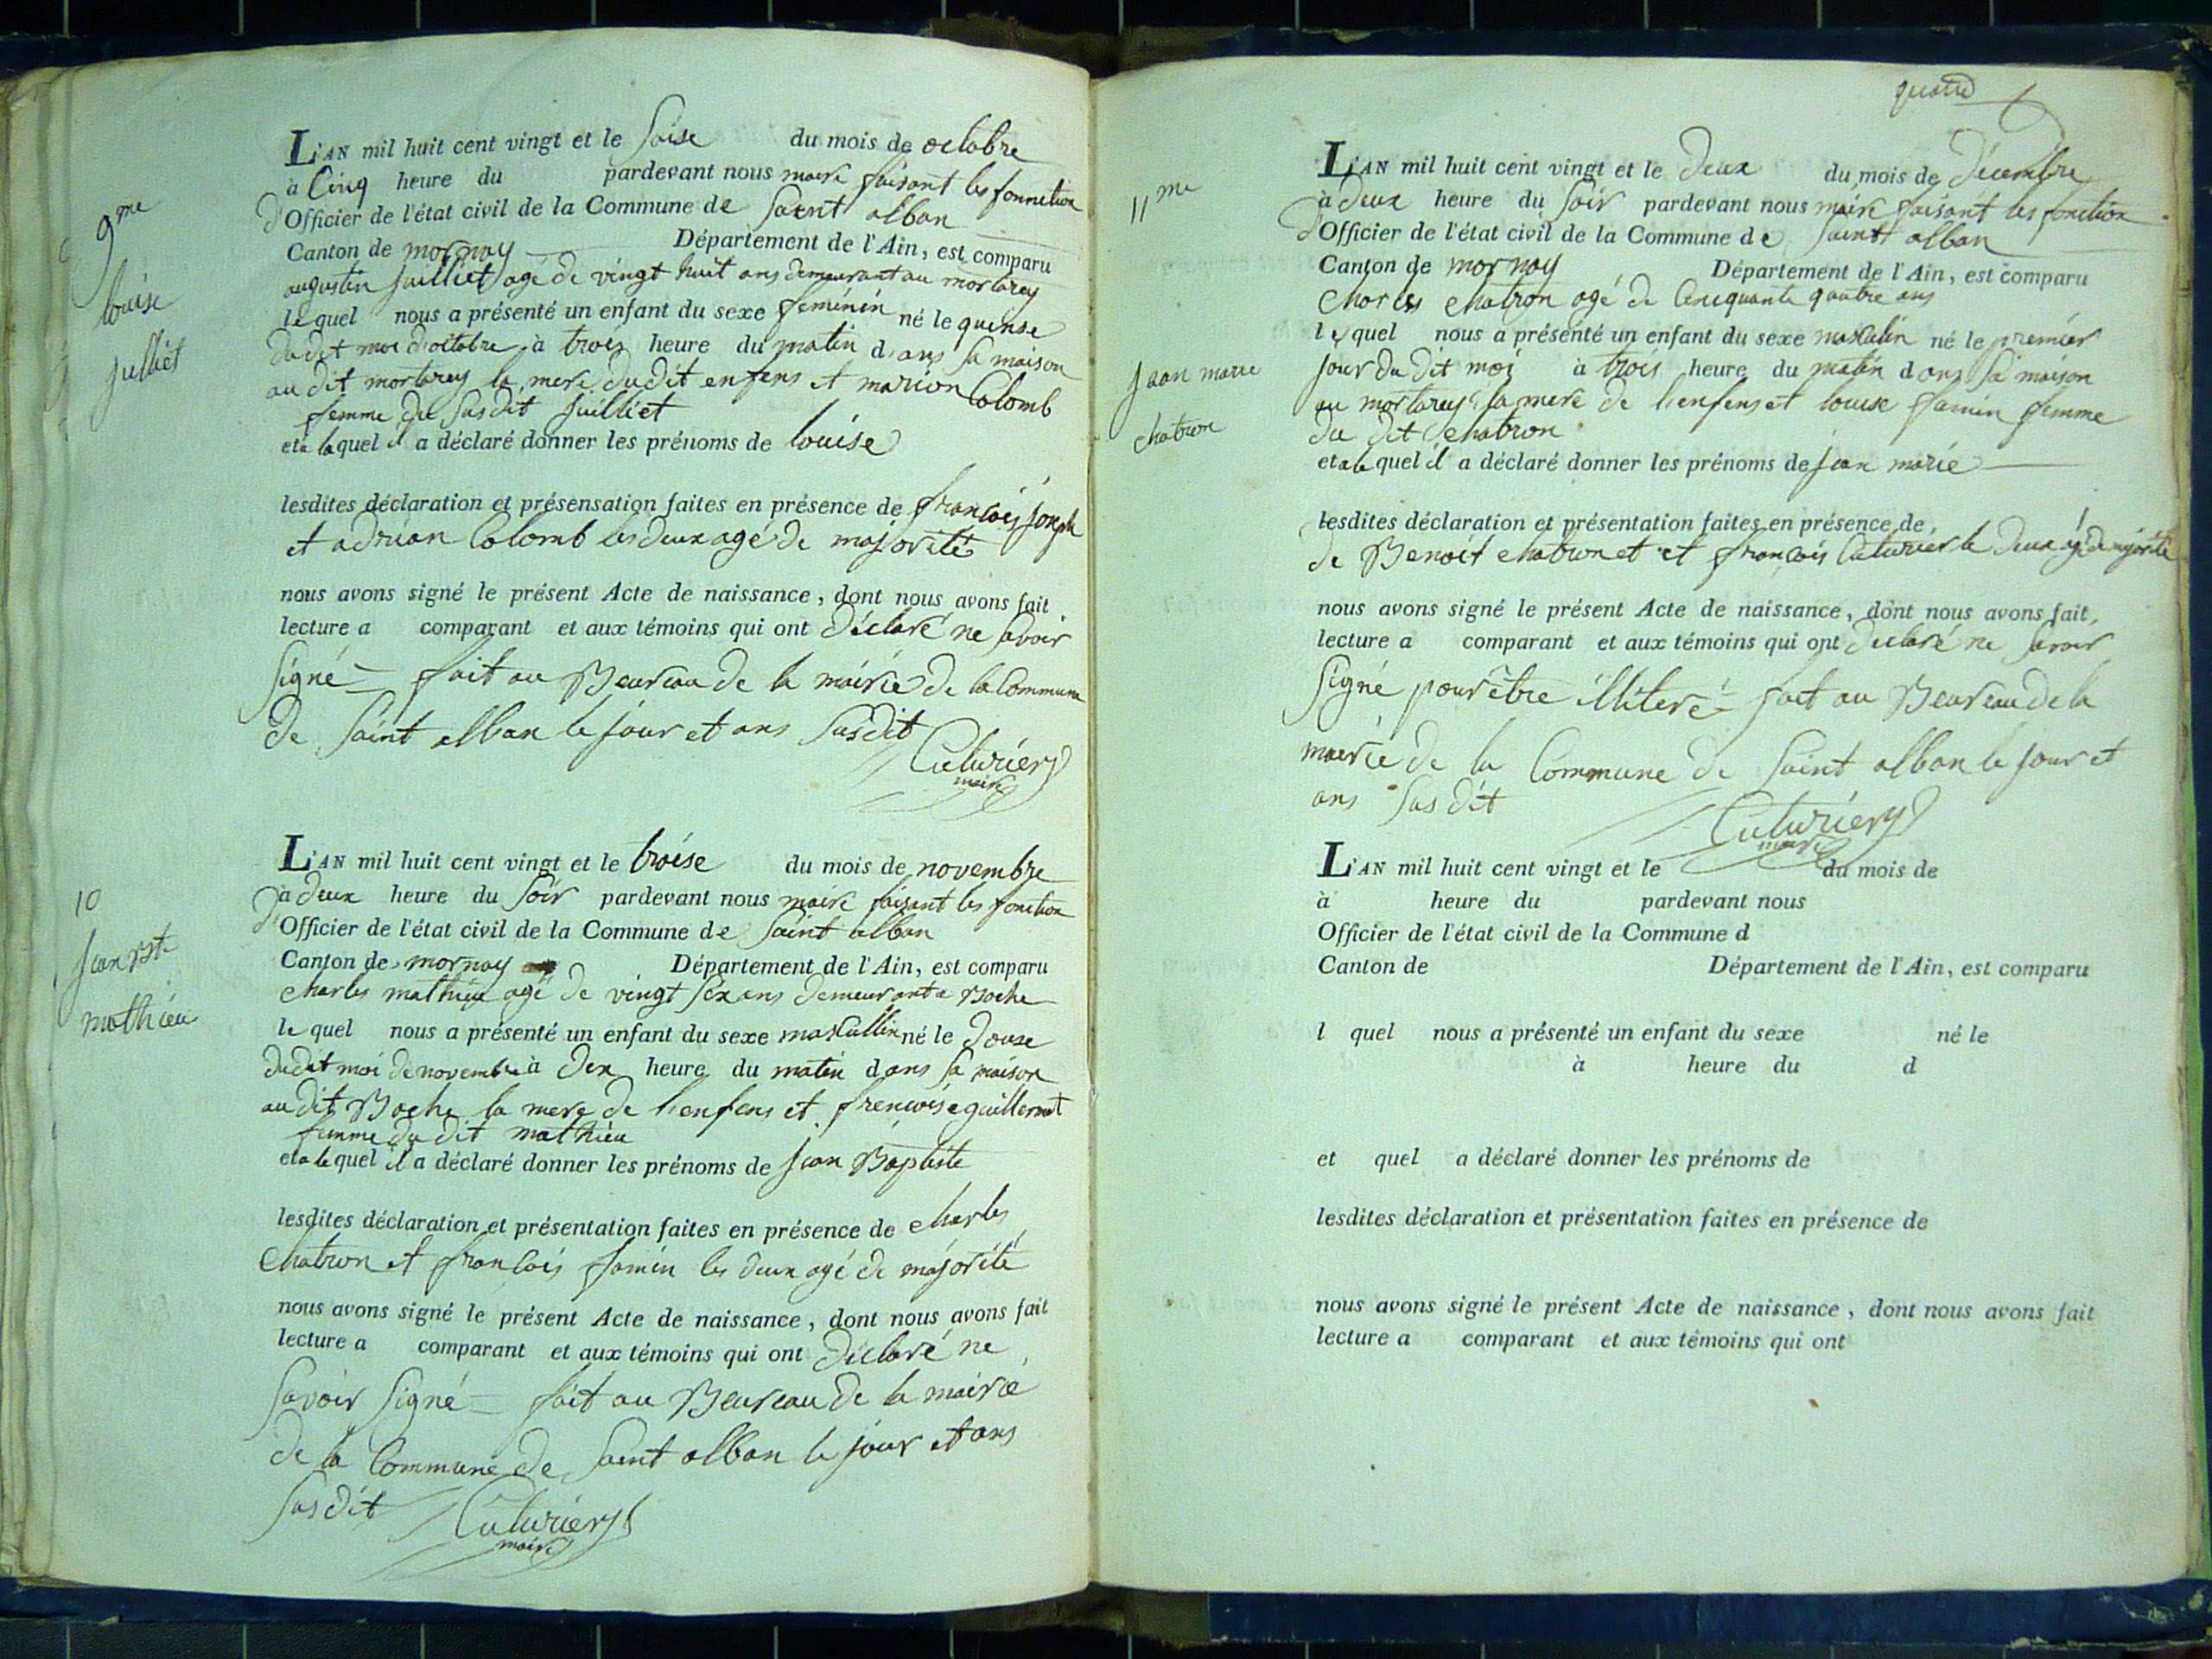 9me
louise
julliet
L'AN mil huit cent vingt et le saise du mois de octobre
à Cinq heure du pardevant nous maire faisant les fonnction
d'Officier de l'état civil de la Commune de saint alban
Canton de mornay Département de l'Ain, est comparu
augustin juilliet agé de vingt huit ans demeurant au mortarey
le quel nous a présenté un enfant du sexe feminin né le quinse
dudit moi d'octobre à trois heure du matin dans sa maison
au dit mortarey la mere dudit enfens et marion Colomb
femme du susdit juilliet
et a laquel il a déclaré donner les prénoms de louise
lesdites déclaration et présensation faites en présence de francois joseph
et adrian Colomb les deux agé de majorité
nous avons signé le présent Acte de naissance, dont nous avons fait
lecture a comparant et aux témoins qui ont déclaré ne savoir
signé = fait au Beureau de la mairie de la Commune
de saint alban le jour et ans susdit
Cuturier
maire
10
jean Bte
mathieu
L'AN mil huit cent vingt et le troise du mois de novembre
à deux heure du soir pardevant nous maire faisant les fonction
d'Officier de l'état civil de la Commune de saint alban
Canton de mornay Département de l'Ain, est comparu
charles mathieu agé de vingt six ans demeurant a Boche
le quel nous a présenté un enfant du sexe masculin né le douse
dudit moi de novembre à dix heure du matin dans sa maison
au dit Boche la mere de l'enfens et frencoise guillermet
femme du dit mathieu
et a le quel il a déclaré donner les prénoms de jean Baptiste
lesdites déclaration et présentation faites en présence de charles
chatron et francois famin les deux agé de majorité
nous avons signé le présent Acte de naissance, dont nous avons fait
lecture a comparant et aux témoins qui ont déclaré ne
savoir signé = fait au Beureau de la mairie
de la Commune de saint alban le jour et ans
susdit Cuturier
maire
quatre
11me
jean marie
chatron
L'AN mil huit cent vingt et le deux du mois de décembre
à deux heure du soir pardevant nous maire faisant les fonction
d'Officier de l'état civil de la Commune de saint alban
Canton de mornay Département de l'Ain, est comparu
charles chatron agé de cinquante quatre ans
le quel nous a présenté un enfant du sexe masculin né le premier
jour du dit moi à trois heure du matin dans sa maison
au mortarey la mere de l'enfens et louise famin femme
du dit chatron
et a le quel il a déclaré donner les prénoms de jean marie
lesdites déclaration et présentation faites en présence de
de Benoit chatron et et francois Cuturier le deux agé de majorité
nous avons signé le présent Acte de naissance, dont nous avons fait
lecture a comparant et aux témoins qui ont déclaré ne savoir
signé pour être illiteré = fait au Beureau de la
mairie de la Commune de saint alban le jour et
ans susdit
Cuturier
maire
L'AN mil huit cent vingt et le du mois de
à heure du pardevant nous
Officier de l'état civil de la Commune d
Canton de Département de l'Ain, est comparu
l quel nous a présenté un enfant du sexe né le
à heure du d
et quel a déclaré donner les prénoms de
lesdites déclaration et présentation faites en présence de
nous avons signé le présent Acte de naissance, dont nous avons fait
lecture a comparant et aux témoins qui ont